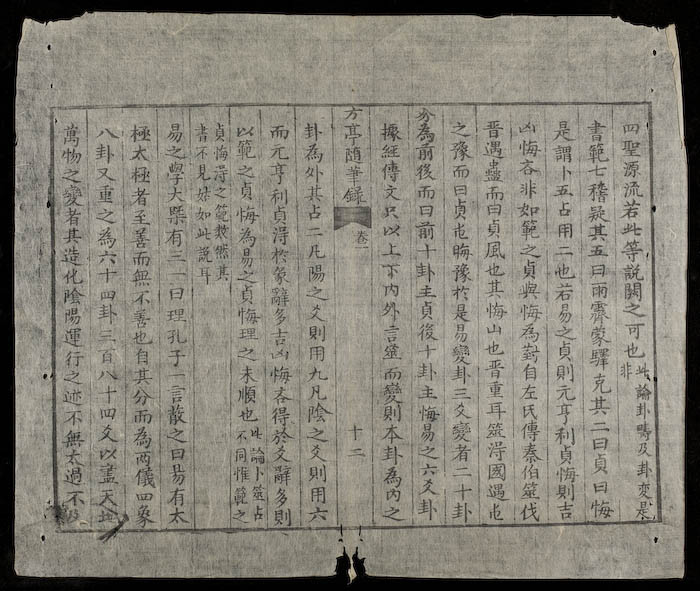 四聖源流若此等說闕之可也此論卦疇及卦変是非
書範七稽疑其五曰雨霽蒙驛克其二曰貞曰悔
是謂卜五占用二也若易之貞則元亨利貞悔則吉
凶悔吝非如範之貞與悔為對自左氏傳秦伯筮伐
晋遇蠱而曰貞風也其悔山也晋重耳筮淂國遇屯
之豫而曰貞屯晦豫於是易變卦三爻變者二十卦
分為前後而曰前十卦主貞後十卦主悔易之六爻卦
據經傳文只以上下內外言筮而變則本卦為內之
方亭隨筆録 卷一 十二
卦為外其占二凡陽之爻則用九凡陰之爻則用六
而元亨利貞淂於彖辭多吉凶悔吝得於爻辭多則
以範之貞悔為易之貞悔理之未順也此論卜筮占不同惟範之
貞悔淂之範教然其書不見妨如此說耳
易之學大槩有三一曰理孔子一言散之曰易有太
極太極者至善而無不善也自其分而為両儀四象
八卦又重之為六十四卦三百八十四爻以盡天地
萬物之變者其造化陰陽運行之迹不無太過不及